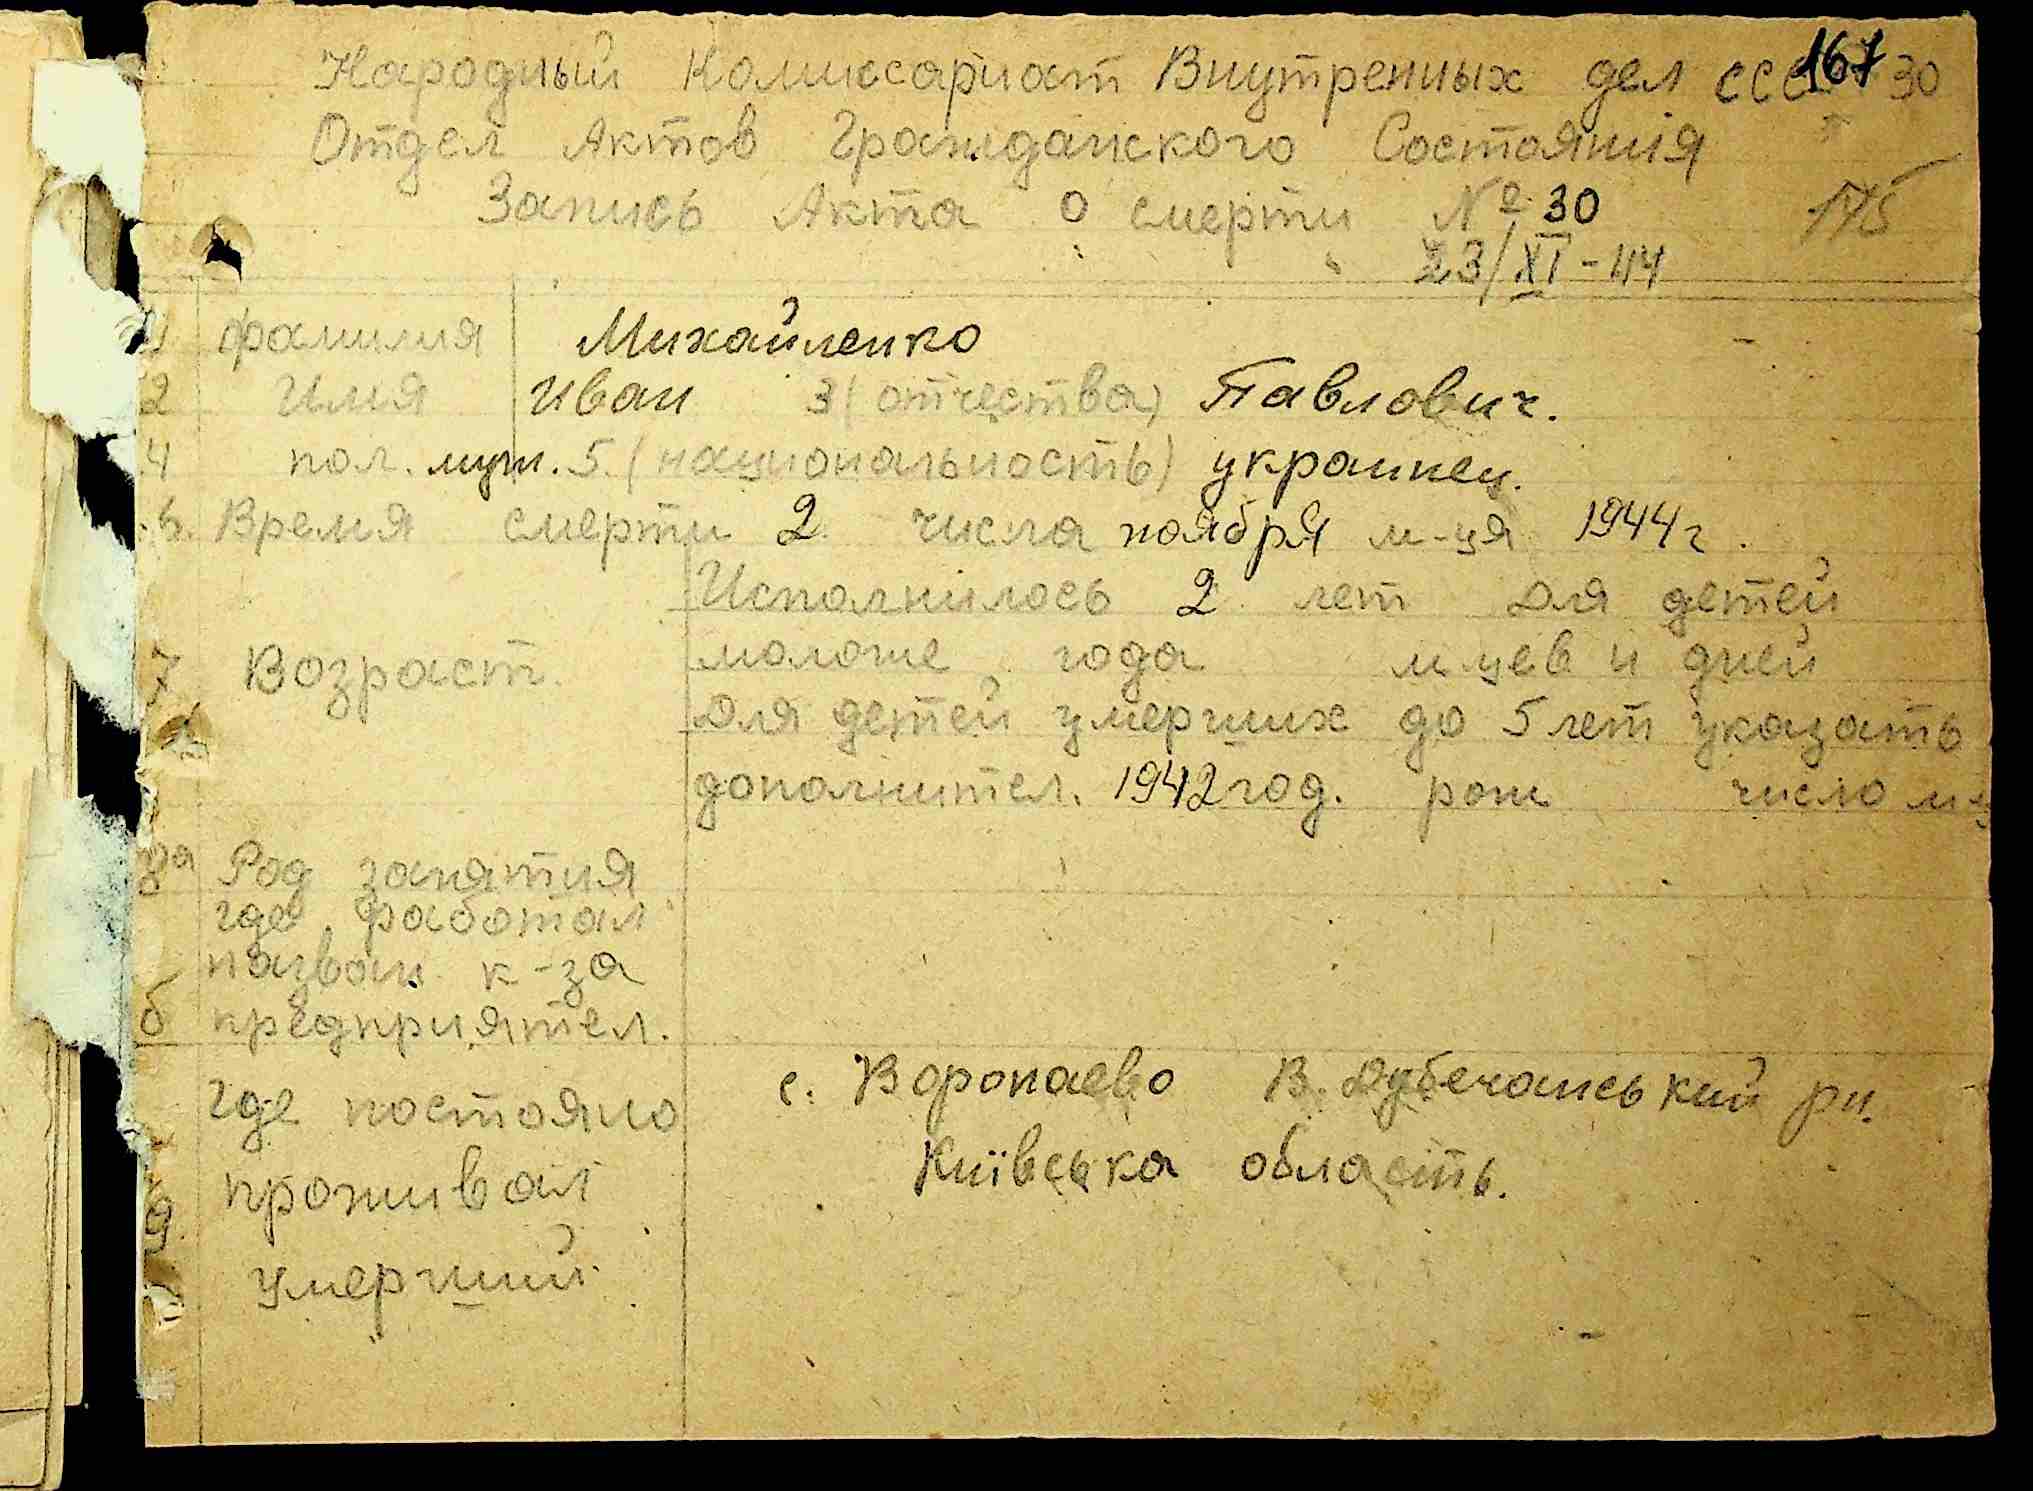 Народный Комиссариат Внутренных дел ССС 167 30
Отдел Актов Гражданского Состояния
Запись Акта о смерти № 30 175
23/XI-44
1 фамилия Михайленко
2 Имя Иван 3 (отчества) Павлович.
4 пол. муж. 5. (национальность) украинец.
6. Время смерти 2 числа ноября м-ця 1944 г.
Исполнилось 2 лет Для детей
7 Возраст. моложе года м-цев и дней
Для детей умерших до 5 лет указать
дополнител. 1942 год. рож число м-ц
8а Род занятия
где работал
назван к-за
б предприятел.
где постояно с. Воропаево В. Дубечанський рн.
проживал Київська область.
9
умерший